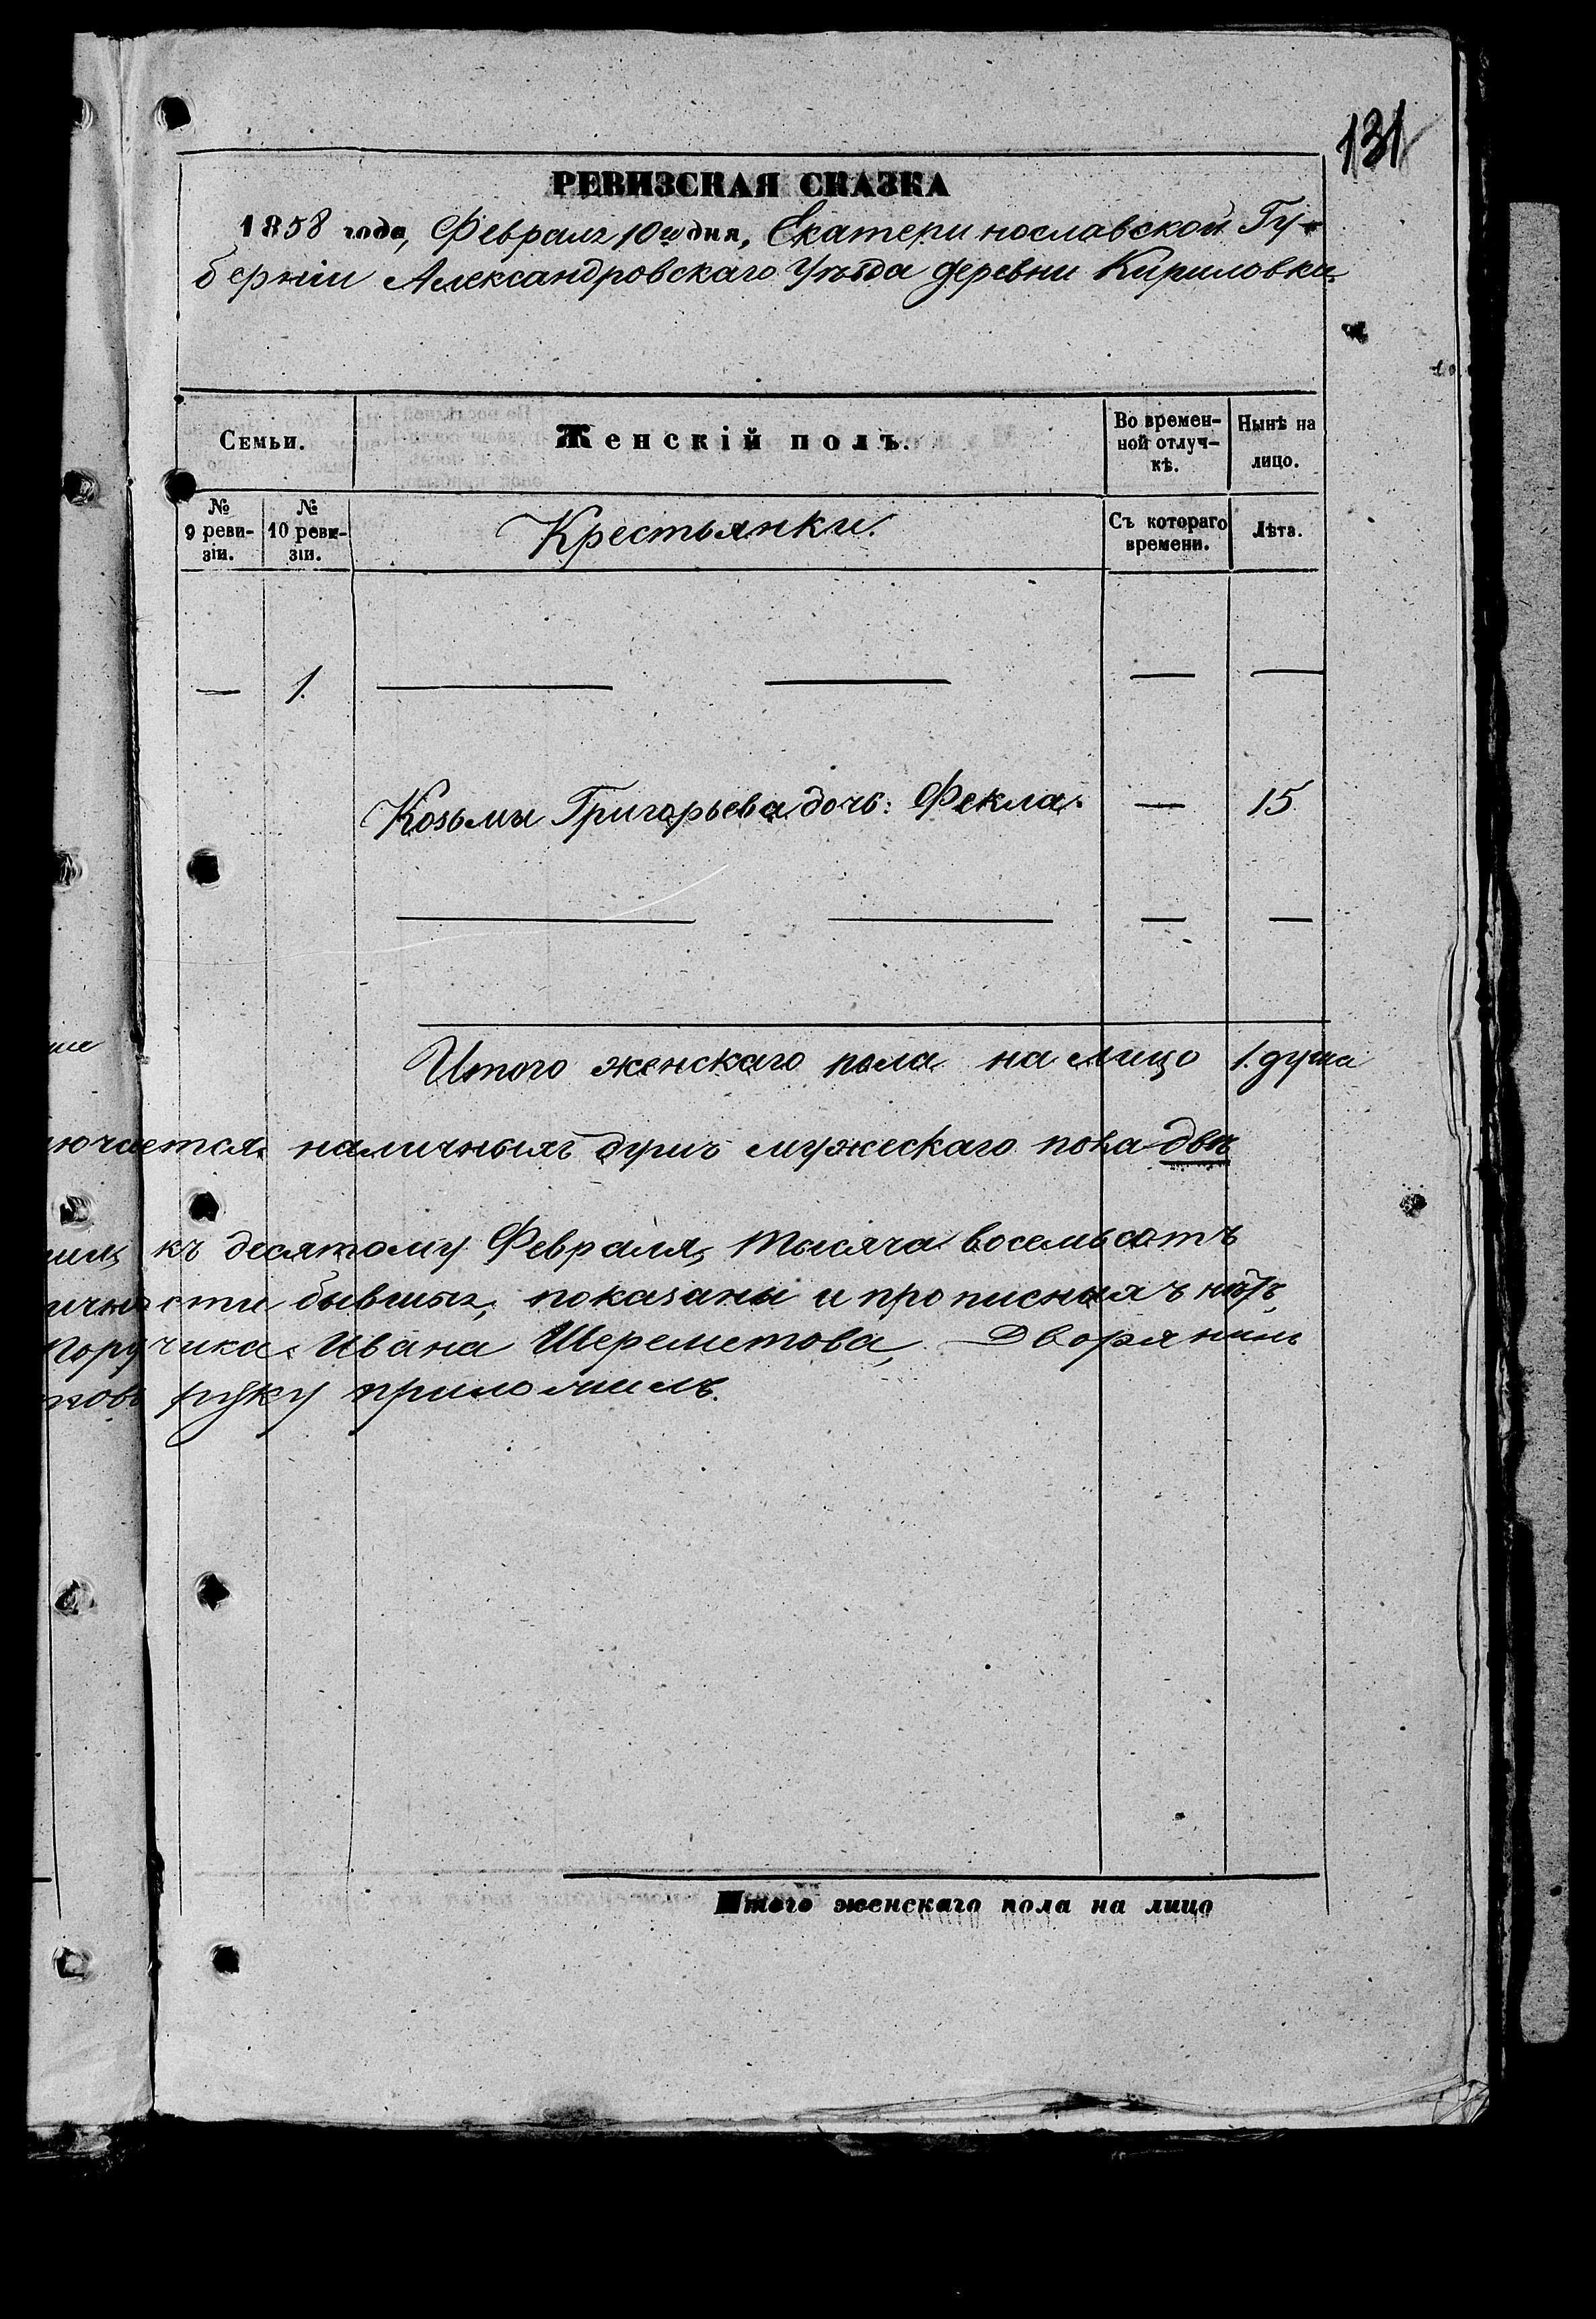 131
РЕВИЗСКАЯ СКАЗКА
1858 года, Февраля 10го дня, Екатеринославской Гу-
бернiи Александровскаго Уѣзда деревни Кириловки
Семьи.
Женскiй полъ.
Во времен-
ной отлуч-
кѣ.
Нынѣ на
лицо.
№
9 реви-
зiи.
№
10 реви-
зiи.
Крестьянки.
Съ котораго
времени.
Лѣта.
— 1. — — — —
Козьмы Григорьева дочь: Фекла. — 15
— — — —
Итого женскаго пола на лицо 1. душа
ючается наличныхъ душъ мужескаго пола двѣ
къ десятому Февраля, тысяча восемьсотъ
ичности бывшыя, показаны и прописныхъ нѣтъ,
Поручика Ивана Шереметова, Дворянинъ
ковъ руку приложилъ.
Итого женскаго пола на лицо